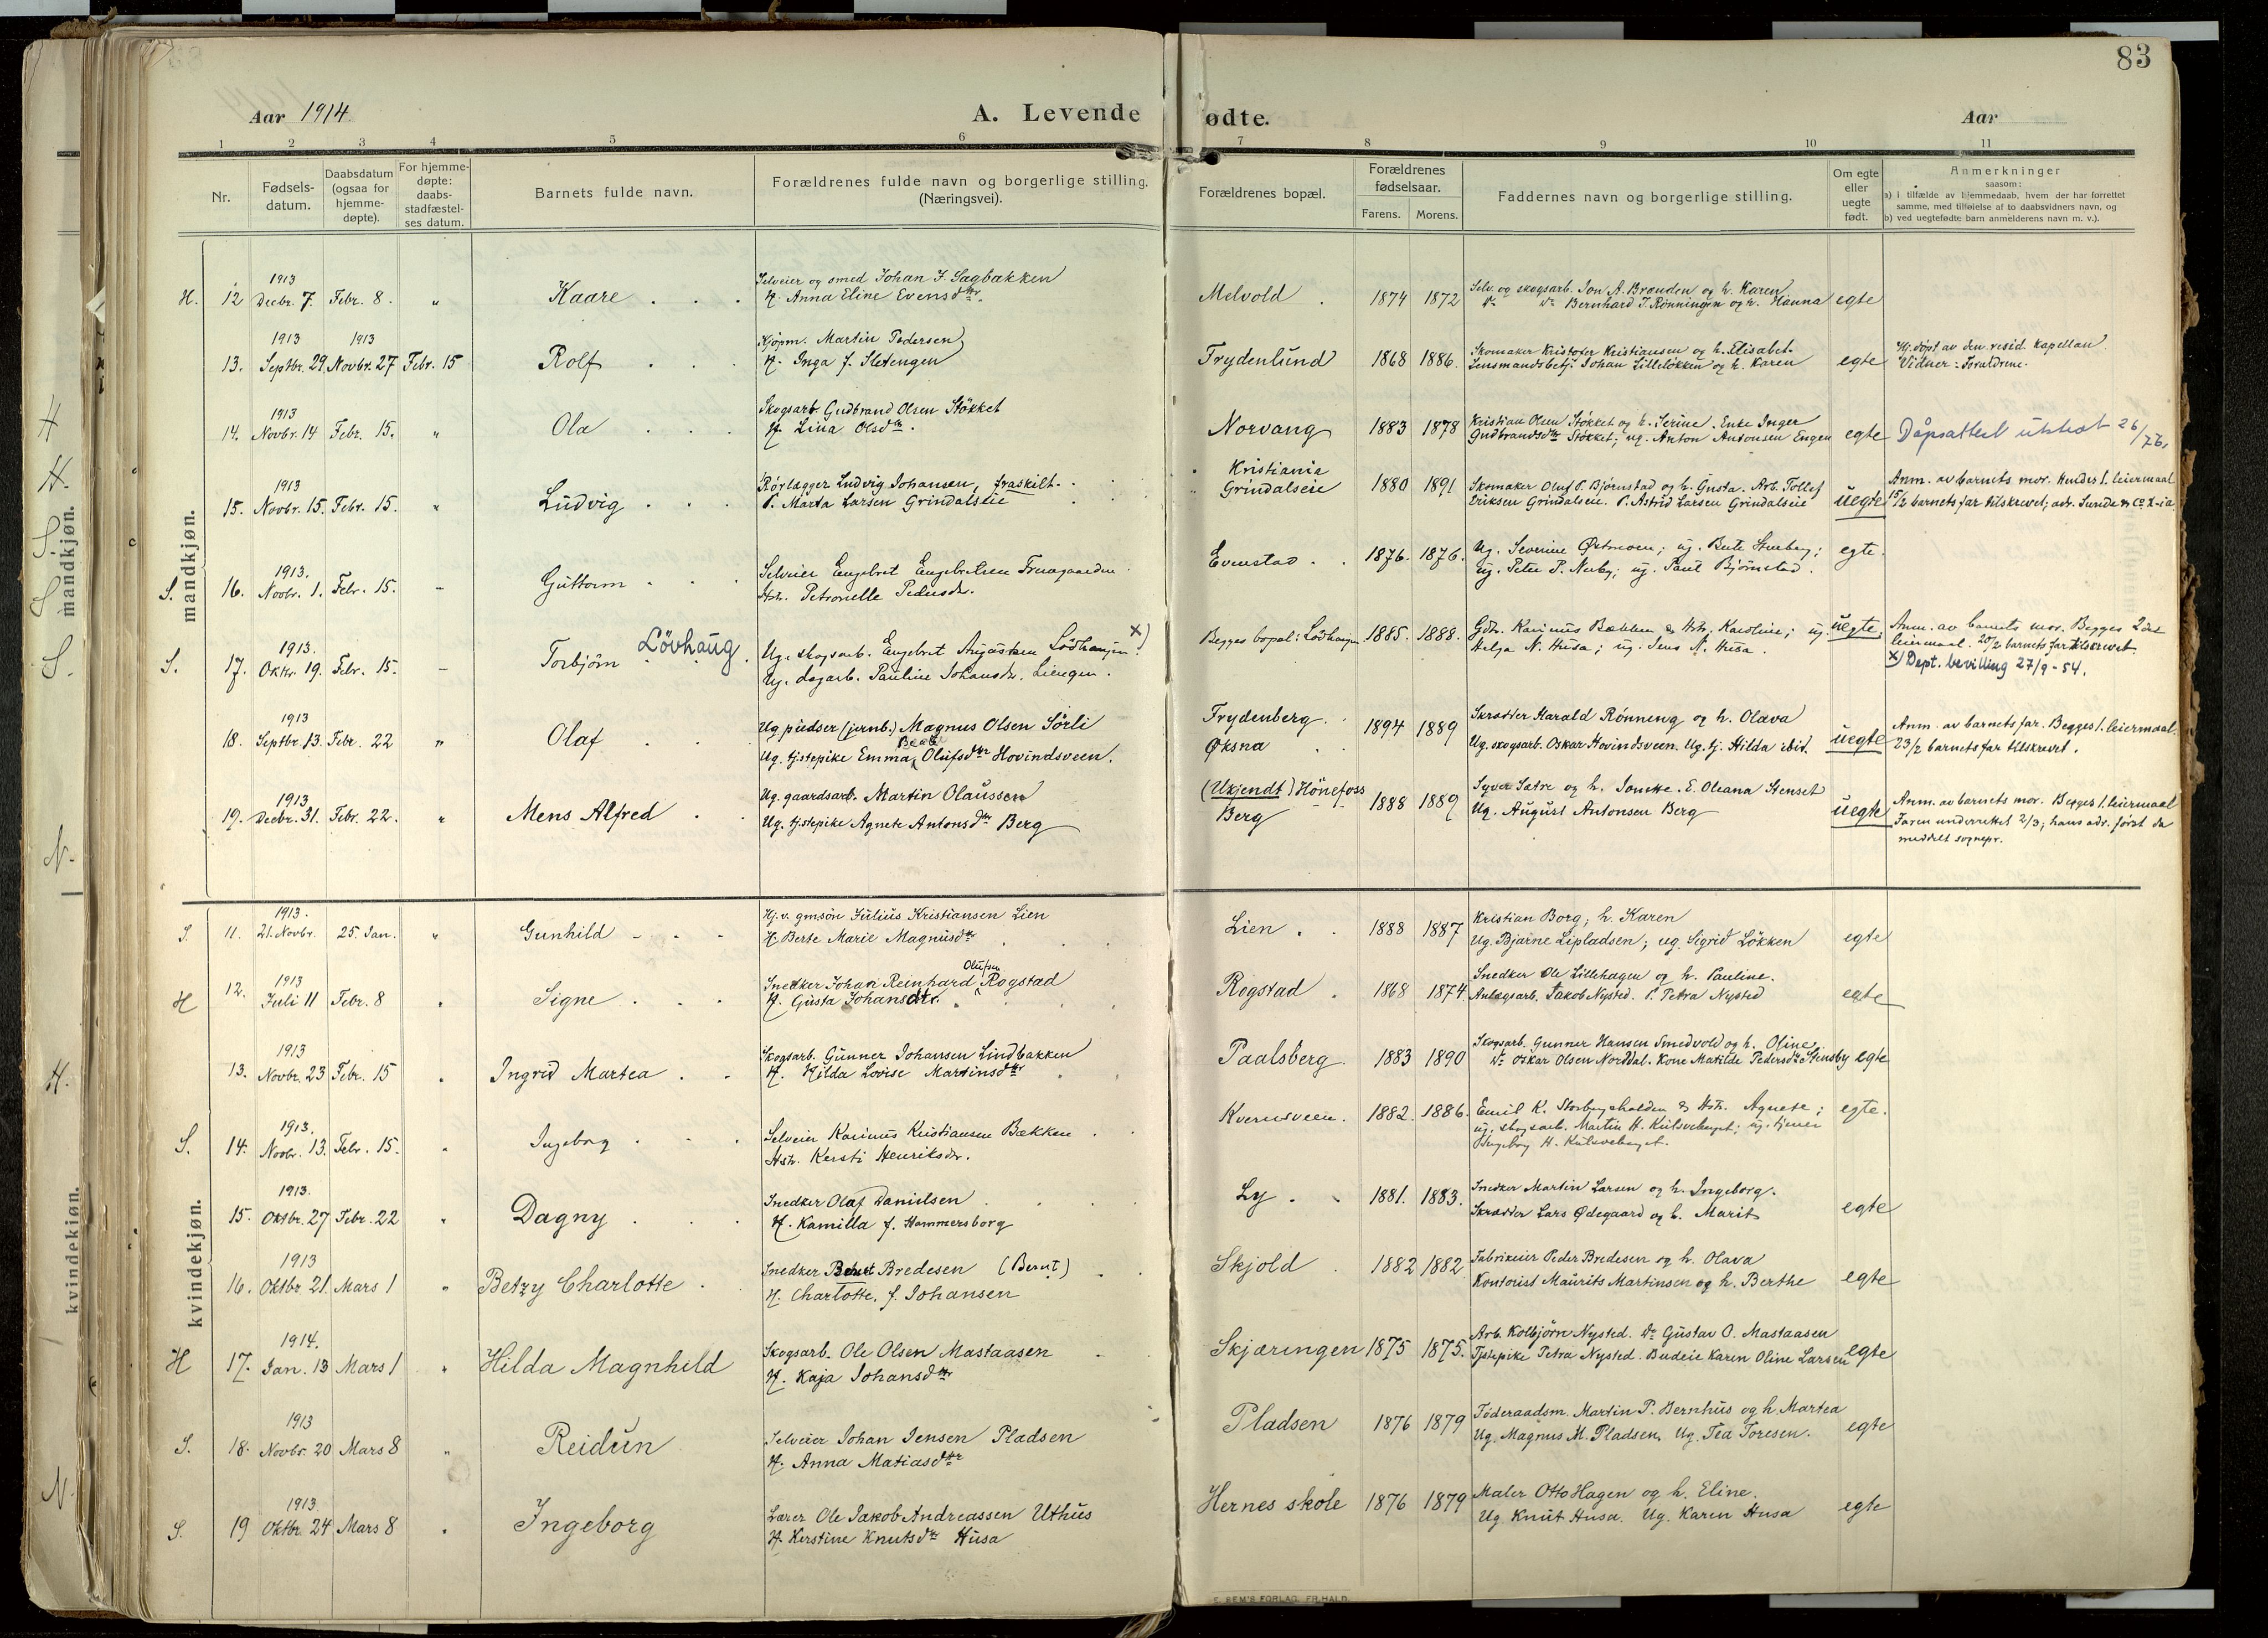 83
Aar 1914.
A. Levende fødte.
Aar
1 2 3 4 5 6 7 8 9 10 11
Nr.
Fødsels-
datum.
Daabsdatum
(ogsaa for
hjemme-
døpte).
For hjemme-
døpte:
daabs-
stadfæstel-
ses datum.
Barnets fulde navn.
Forældrenes fulde navn og borgerlige stilling.
(Næringsvei).
Forældrenes bopæl.
Forældrenes
fødselsaar.
Farens. Morens.
Faddernes navn og borgerlige stilling.
Om egte
eller
uegte
født.
Anmerkninger
saasom:
a) i tilfælde av hjemmedaab, hvem der har forrettet
samme, med tilføielse af to daabsvidners navn, og
b) ved uegtefødte barn anmelderens navn m. v.).
mandkjøn.
H. 12 1913 Decbr. 7. Febr. 8. " Kaare
Selveier og smed Johan J. Sagbakken
H. Anna Eline Evensdtr.
Melvold 1874 1872
Selv. og skogsarb. Jon A. Brænden og h. Karen
do do Bernhard J. Rönningen og h. Hanna egte
13. 1913 Septbr. 29. 1913 Novbr. 27 Febr. 15 Rolf
Kjöpm. Martin Pedersen
H. Inga f. Sletengen
Frydenlund 1868 1886.
Skomaker Kristofer Kristiansen og h. Elisabet.
Lensmandsbetj. Johan Lillelökken og h. Karen egte
Hj. döpt av den resid. kapellan
Vidner: Forældrene.
14. 1913 Novbr. 14 Febr. 15. " Ola
Skogsarb. Gudbrand Olsen Stökket
H. Lina Olsdtr.
Norvang 1883 1878
Kristian Olsen Stökket og h. Serine. Enke Inger
Gudbrandsdtr Stökket; ug. Anton Antonsen Engen egte
Dåpsattest utstedt 26/76.
15. 1913 Novbr. 15. Febr. 15. " Ludvig
Rörlægger Ludvig Johansen, fraskilt.
P. Marta Larsen Grindalseie
Kristiania
Grindalseie 1880 1891
Skomaker Oluf P. Björnstad og h. Gusta. Arb. Tollef
Eriksen Grindalseie. P. Astrid Larsen Grindalseie uegte
Anm. av barnets mor. Hendes 1. leiermaal
15/2 barnets far tilskrevet; adr. Sunde & Co K-ia
S. 16. 1913. Novbr. 1. Febr. 15. Guttorm
Selveier Engebret Engebretsen Fruagaarden
Hstr. Petronelle Pedersdr.
Evenstad 1876. 1876.
Ug. Severine Østmoen; ug. Berte Storberg;
ug. Peter P. Nerby; ug. Paul Björnstad. egte.
S. 17. 1913. Oktr. 19. Febr. 15. Torbjörn Lövhaug.
Ug. skogsarb. Engebret Augustsen Lödhaugen. x)
Ug. dagarb. Pauline Johansdr. Liengen.
Begges bopæl: Lödhaugen 1885. 1888.
Gdbr. Karinus Bækken & Hstr. Karoline; ug.
Helga N. Husa; ug. Jens N. Husa. uegte;
Anm. av barnets mor. Begges 2det
leiermaal. 20/2 barnets far tilskrevet.
x) Dept. bevilling 27/9-54.
18. 1913 Septbr. 13. Febr. 22 " Olaf
Ug. pudser (jernb.) Magnus Olsen Sörli
Ug. tjstepike Emma Beate Olufsdtr Hovindsveen.
Frydenberg.
Øksna 1894 1889
Skrædder Harald Rönning og h. Olava
Ug. skogsarb. Oskar Hovindsveen. Ug. tj. Hilda ibid. uegte
Anm. av barnets far. Begges 1. leiermaal.
23/2 barnets far tilskrevet.
19. 1913 Decbr. 31. Febr. 22. " Mens Alfred
Ug. gaardsarb. Martin Olaussen
Ug. tjstepike Agnete Antonsdtr Berg
(Ukjendt) Hönefoss
Berg 1888 1889
Syver Sætre og h. Jonette. E. Oleana Stenset
Ug. August Antonsen Berg uegte
Anm. av barnets mor. Begges 1. leiermaal
Faren underrettet 2/3; hans adr. först da
meddelt sognepr.
kvindekjøn.
S. 11. 1913. 21. Novbr. 25. Jan. " Gunhild
Hj. v. gmsön Julius Kristiansen Lien
H. Berte Marie Magnusdtr
Lien 1888 1887
Kristian Borg; h. Karen
Ug. Bjarne Lipladsen; ug. Sigrid Lökken egte
H 12. 1913 Juli 11 Febr. 8 " Signe
Snedker Johan Reinhard Olufsen Rogstad
H. Gusta Johansdtr.
Rogstad 1868 1874.
Snedker Ole Lillehagen og h. Pauline.
Anlægsarb. Jakob Nysted. P. Petra Nysted egte
13. 1913 Novbr. 23 Febr. 15 " Ingrid Martea
Skogsarb. Gunner Johansen Lindbakken
H. Hilda Lovise Martinsdtr
Paalsberg. 1883 1890
Skogsarb. Gunner Hansen Smedvold og h. Oline.
do Oskar Olsen Norddal. Kone Matilde Pedersdtr Stensby egte
S. 14. 1913. Novbr. 13. Febr. 15. " Ingeborg
Selveier Karinus Kristiansen Bækken
Hstr. Kersti Henriksdr.
Kvernsveen. 1882. 1886.
Emil K. Storbergshalden & Hstr. Agnete;
ug. skogsarb. Martin H. Kulsveberget; ug. tjener
Ingeborg H. Kulsveberget. egte.
15. 1913. Oktbr. 27 Febr. 22 " Dagny
Snedker Olaf Danielsen
H. Kamilla f. Hammersborg
Ly 1881. 1883.
Snedker Martin Larsen og h. Ingeborg.
Skrædder Lars Ødegaard og h. Marit egte
16. 1913 Oktbr. 21. Mars 1 " Betzy Charlotte
Snedker Bernt Bredesen (Bernt)
H. Charlotte, f. Johansen
Skjold 1882 1882
Fabrikeier Peder Bredesen og h. Olava
Kontorist Maurits Martinsen og h. Berthe egte
H 17. 1914. Jan. 13 Mars 1 " Hilda Magnhild
Skogsarb. Ole Olsen Mastaasen
H. Kaja Johansdtr
Skjæringen 1875 1875.
Arb. Kolbjörn Nysted. do Gustav O. Mastaasen
Tjstepike Petra Nysted. Budeie Karen Oline Larsen egte
S. 18. 1913 Novbr. 20 Mars 8 " Reidun
Selveier Johan Jensen Pladsen
H. Anna Matiasdtr
Pladsen 1876 1879
Föderaadsm. Martin P. Bernhus og h. Martea
Ug. Magnus M. Pladsen. Ug. Tea Toresen. egte
S. 19 1913. Oktbr. 24 Mars 8 " Ingeborg
Lærer Ole Jakob Andreassen Uthus
H. Kerstine Knutsdtr Husa
Hernes skole 1876 1879
Maler Otto Hagen og h. Eline.
Ug. Knut Husa. Ug. Karen Husa egte
SEM'S FORLAG, FR.HALD